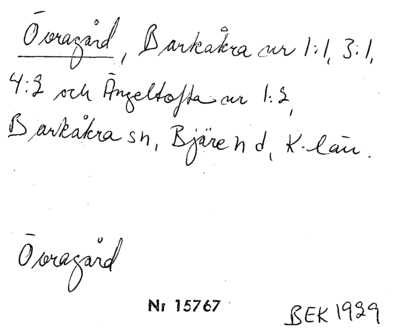 Övragård, Barkåkra nr 1:1, 3:1,
4:2 och Ängeltofta nr 1:2,
Barkåkra sn, Bjäre hd, K-län.
Övragård
Nr 15767
BEK 1929